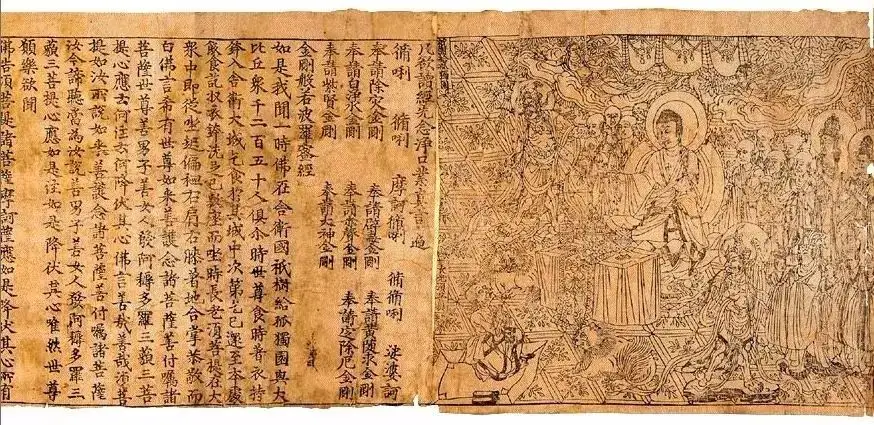 凡欲讀經先念淨口業真言遍
脩唎 脩唎 摩訶脩唎 脩脩唎 娑婆訶
奉請除灾金剛 奉請辟毒金剛 奉請黃随求金剛
奉請白淨水金剛 奉請赤聲金剛 奉請定除厄金剛
奉請紫賢金剛 奉請大神金剛
金剛般若波羅蜜經
如是我聞一時佛在舍衛國祇樹給孤獨園與大
比丘衆千二百五十人俱尒時世尊食時著衣持
鉢入舍衛大城乞食於其城中次第乞已還至本處
飯食訖収衣鉢洗足已敷座而坐時長老湏菩提在大
衆中即從坐起偏袒右肩右膝著地合掌恭敬而
白佛言希有世尊如來善護念諸菩薩善付囑諸
菩薩世尊善男子善女人發阿耨多羅三藐三菩
提心應云何住云何降伏其心佛言善哉善哉湏菩
提如汝所說如來善護念諸菩薩善付囑諸菩薩
汝今諦聽當為汝說善男子善女人發阿耨多羅三
藐三菩提心應如是住如是降伏其心唯然世尊
願樂欲聞
佛告湏菩提諸菩薩摩訶薩應如是降伏其心所有